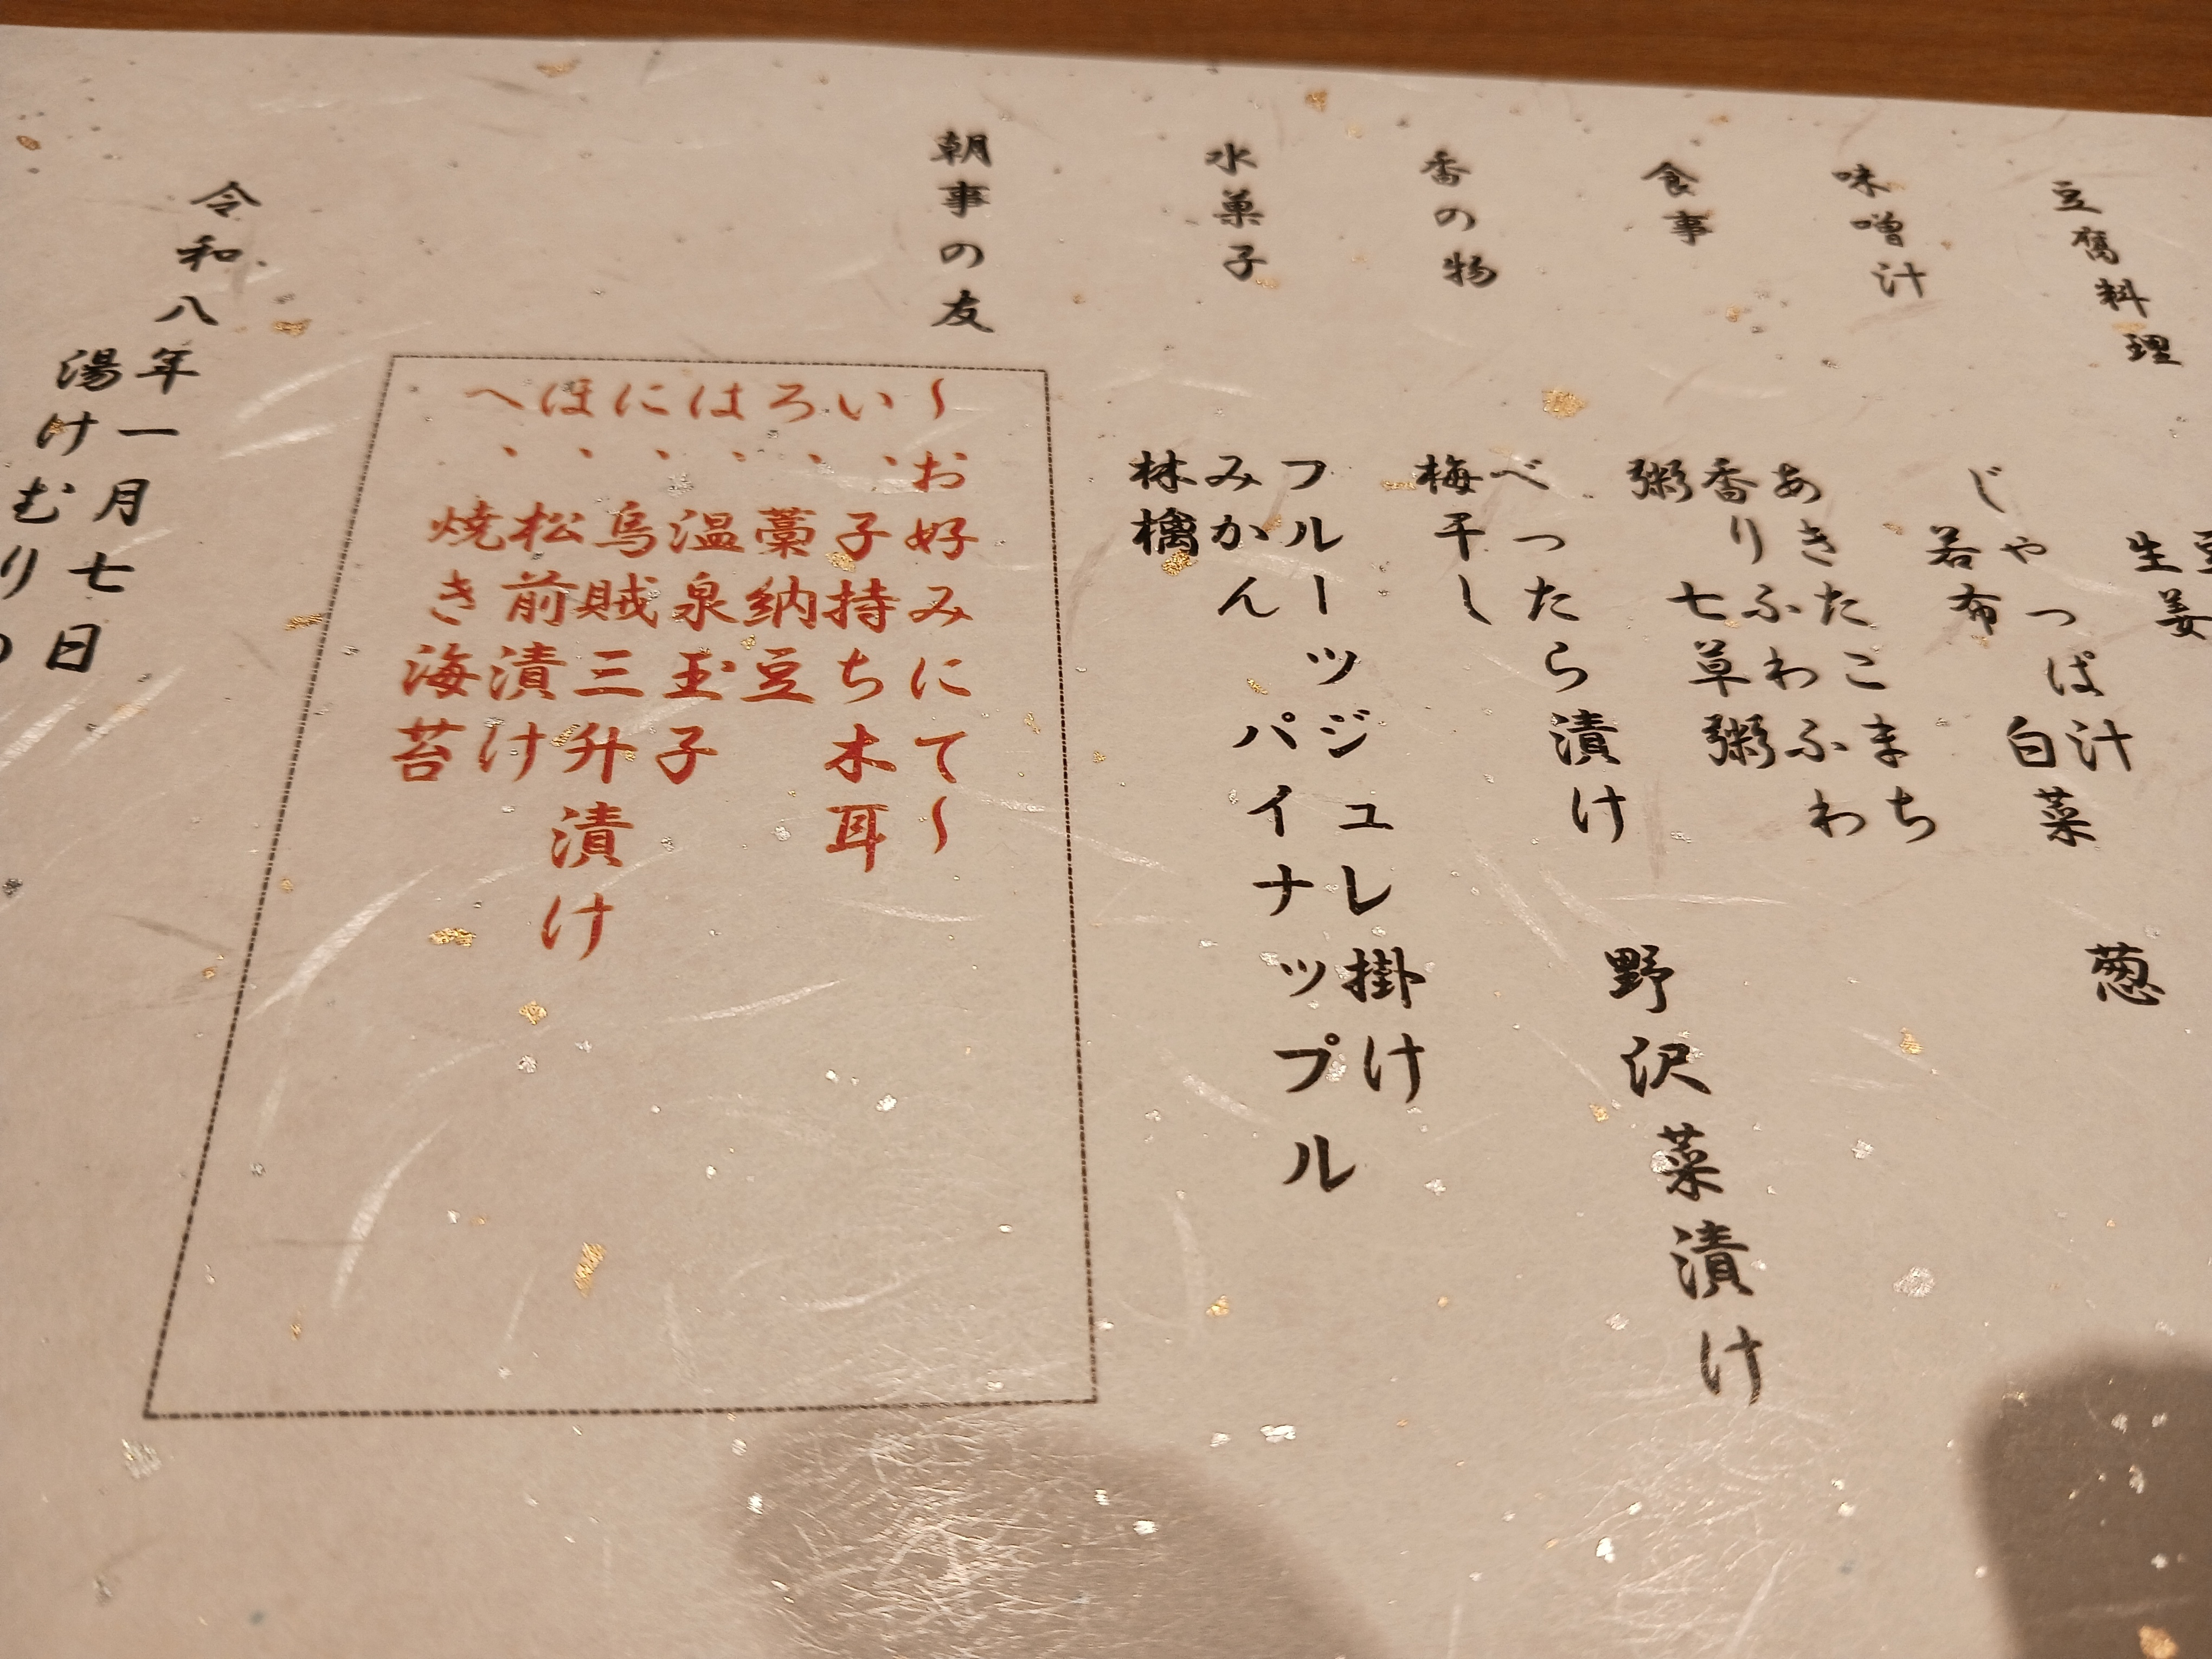 豆腐料理
生姜
味噌汁
じゃっぱ汁
若布　白菜　葱
食事
あきたこまち
香りふわふわ
粥　七草粥
香の物
べったら漬け　野沢菜漬け
梅干し
水菓子
フルーツジュレ掛け
みかん　パイナップル
林檎
朝事の友
～お好みにて～
い、子持ち木耳
ろ、藁納豆
は、温泉玉子
に、烏賊三升漬け
ほ、松前漬け
へ、焼き海苔
令和八年一月七日
湯けむり